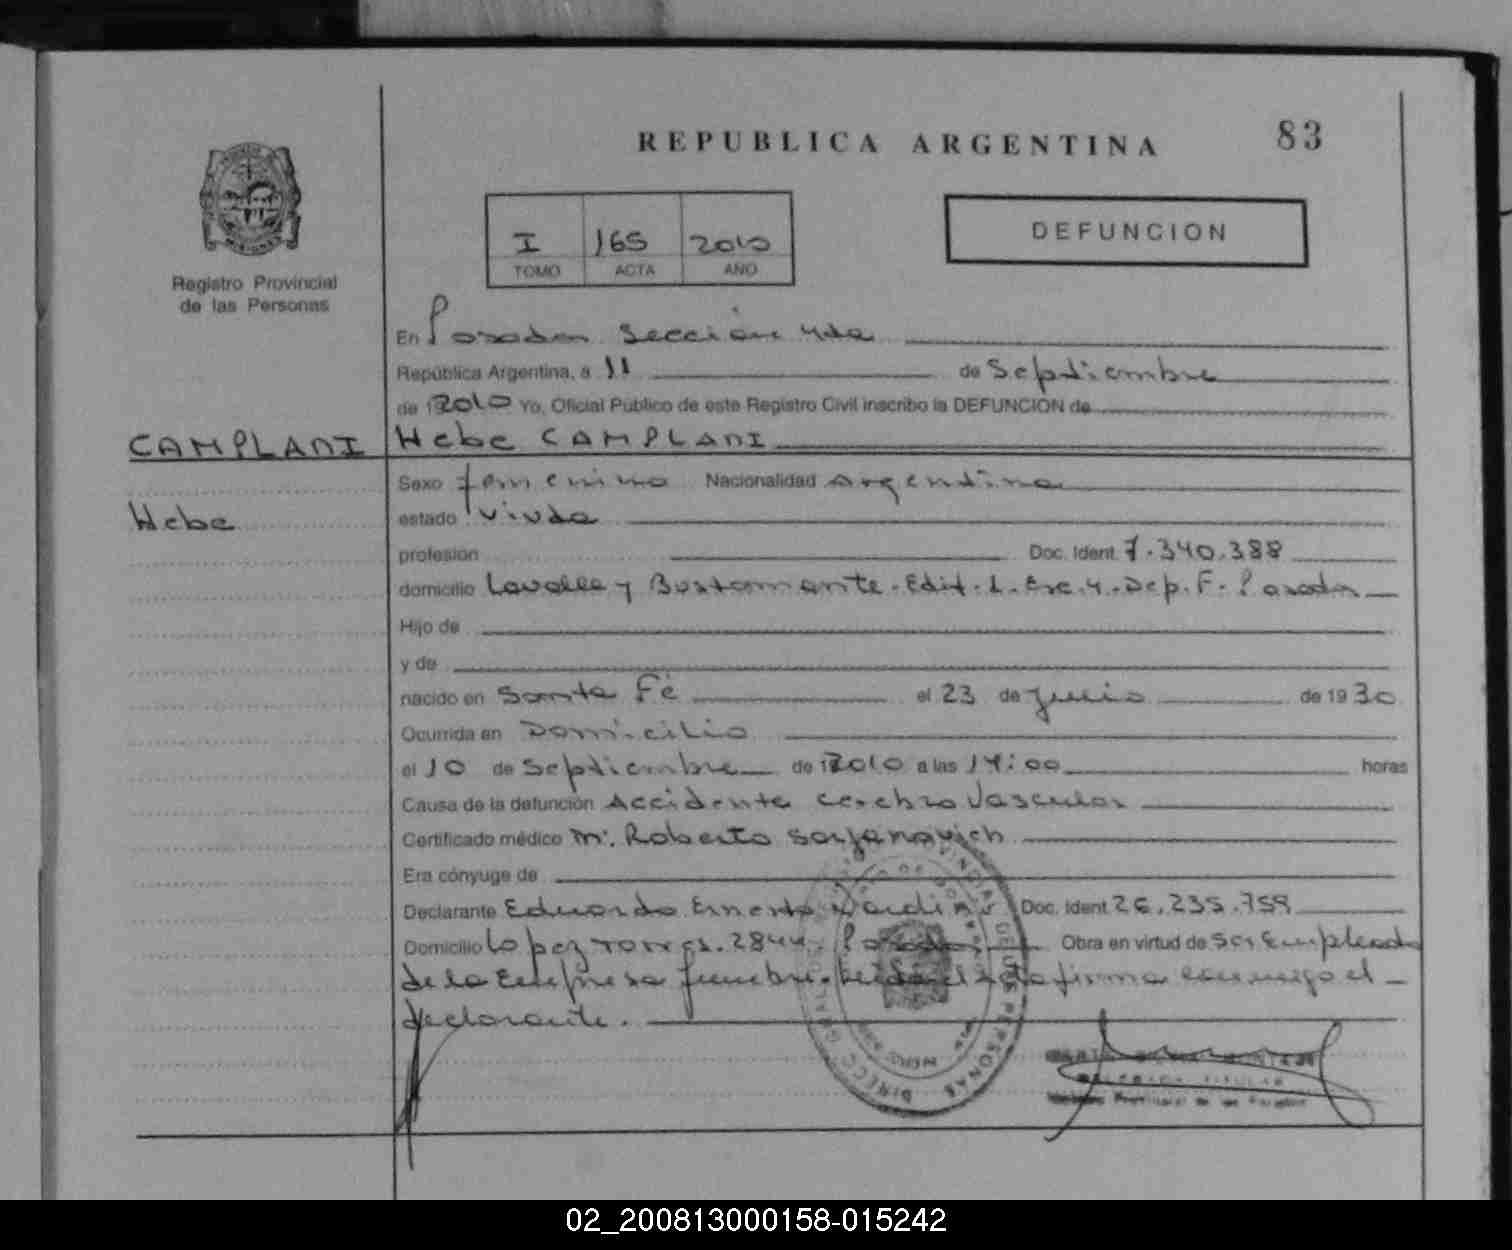 REPUBLICA ARGENTINA 83
I 165 2010
TOMO ACTA AÑO
DEFUNCION
Registro Provincial
de las Personas
En Posadas Sección 4ta
República Argentina, a 11 de Septiembre
de 2010 Yo, Oficial Público de este Registro Civil inscribo la DEFUNCION de
CAMPLANI Hebe CAMPLANI
Sexo femenino Nacionalidad Argentina
Hebe
estado viuda
profesión Doc. Ident. 7.340.388
domicilio Lavalle y Bustamante. Edif. 1. Esc. 4. Dep. F. Posadas
Hijo de
y de
nacido en Santa Fé el 23 de junio de 1930
Ocurrida en Domicilio
el 10 de Septiembre de 2010 a las 14:00 horas
Causa de la defunción Accidente cerebro vascular
Certificado médico M: Roberto
Era cónyuge de
Declarante Eduardo Ernesto Doc. Ident 26.235.759
Domicilio Lopez Torres. 2844. Posadas Obra en virtud de ser Empleado
de la Empresa funebre. Leida el acta firma conmigo el
declarante.
02_200813000158-015242